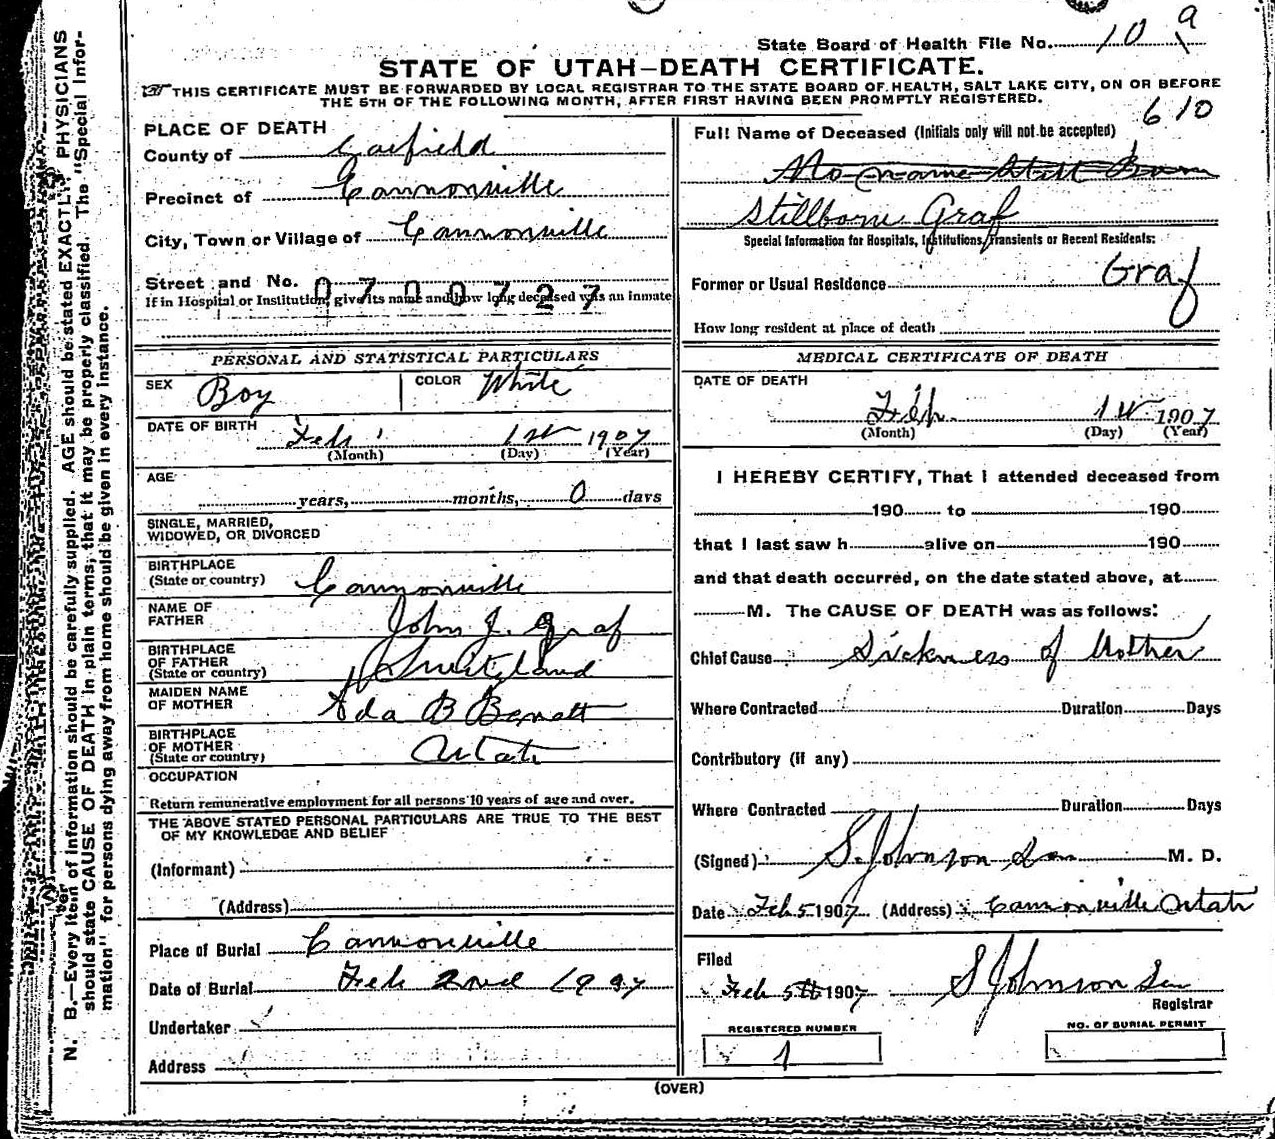 State Board of Health File No. 10 9
STATE OF UTAH—DEATH CERTIFICATE.
THIS CERTIFICATE MUST BE FORWARDED BY LOCAL REGISTRAR TO THE STATE BOARD OF HEALTH, SALT LAKE CITY, ON OR BEFORE
THE 5TH OF THE FOLLOWING MONTH, AFTER FIRST HAVING BEEN PROMPTLY REGISTERED.
610
PLACE OF DEATH
County of Garfield
Precinct of Cannonville
City, Town or Village of Cannonville
Street and No. 0700727
If in Hospital or Institution, give its name and how long deceased was an inmate
Full Name of Deceased (Initials only will not be accepted)
No name Still Born
Stillborn Graf
Special Information for Hospitals, Institutions, Transients or Recent Residents:
Graf
Former or Usual Residence
How long resident at place of death
PERSONAL AND STATISTICAL PARTICULARS
SEX Boy COLOR White
DATE OF BIRTH Feb 1st 1907
(Month) (Day) (Year)
AGE
years, months, 0 days
SINGLE, MARRIED,
WIDOWED, OR DIVORCED
BIRTHPLACE
(State or country) Cannonville
NAME OF
FATHER John J. Graf
BIRTHPLACE
OF FATHER
(State or country) Switzland
MAIDEN NAME
OF MOTHER Ada B
BIRTHPLACE
OF MOTHER
(State or country) Utah
OCCUPATION
Return remunerative employment for all persons 10 years of age and over.
THE ABOVE STATED PERSONAL PARTICULARS ARE TRUE TO THE BEST
OF MY KNOWLEDGE AND BELIEF
(Informant)
(Address)
Place of Burial Cannonville
Date of Burial Feb 2nd 1907
Undertaker
Address
MEDICAL CERTIFICATE OF DEATH
DATE OF DEATH
Feb. 1st 1907
(Month) (Day) (Year)
I HEREBY CERTIFY, That I attended deceased from
190 to 190
that I last saw h alive on 190
and that death occurred, on the date stated above, at
M. The CAUSE OF DEATH was as follows:
Chief Cause Sickness of Mother
Where Contracted Duration Days
Contributory (if any)
Where Contracted Duration Days
(Signed) S. Johnson M. D.
Date Feb 5 1907 (Address) Cannonville Utah
Filed
Feb 5th 1907 S Johnson Sen
Registrar
REGISTERED NUMBER
1
NO. OF BURIAL PERMIT
(OVER)
N. B.—Every item of information should be carefully supplied. AGE should be stated EXACTLY. PHYSICIANS
should state CAUSE OF DEATH in plain terms, that it may be properly classified. The "Special Infor-
mation" for persons dying away from home should be given in every instance.